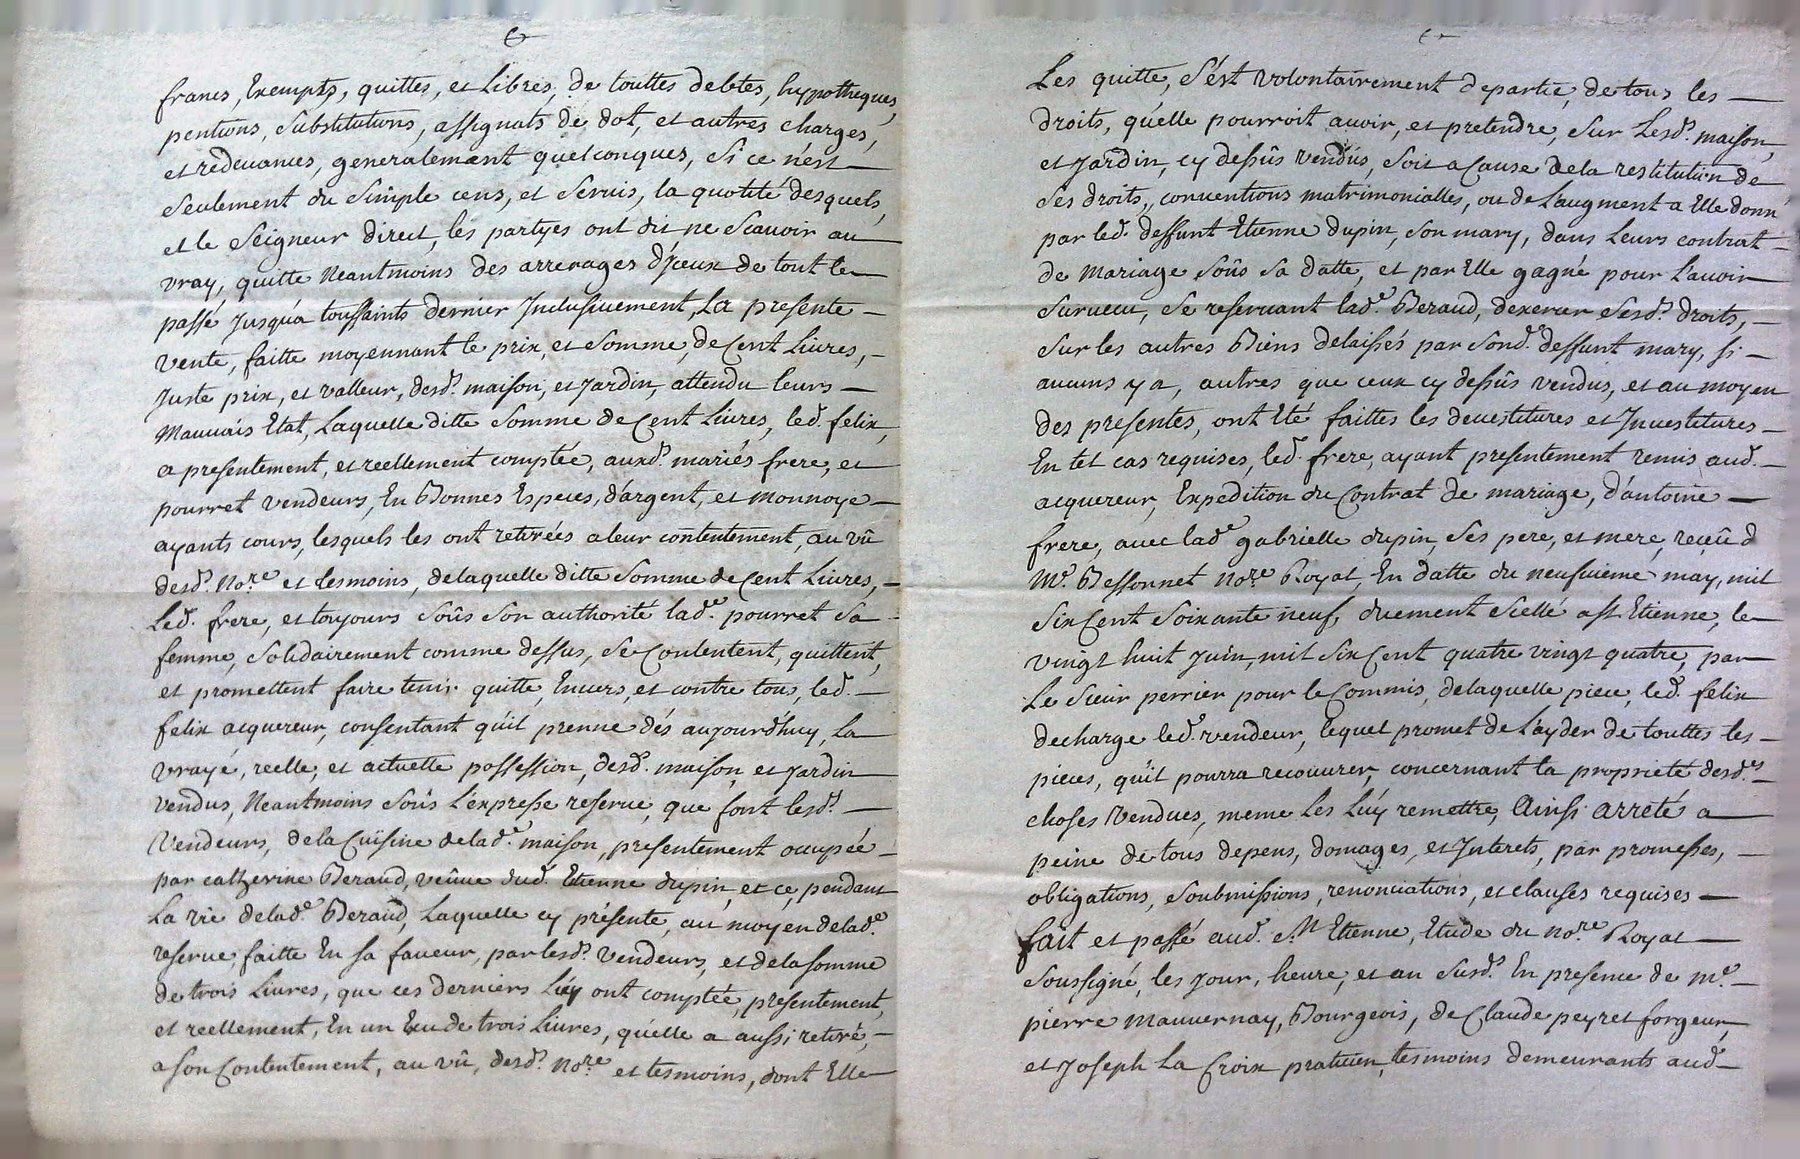 francs, Exempts, quittes, et Libres, de touttes debtes, hypotheques,
pentions, substitutions, assignats de dot, et autres charges,
et redevances, generalement quelconques, si ce n'est
seulement du simple cens, et servis, la quotité desquels,
et le seigneur direct, les partyes ont dit ne scavoir au
vray, quitte Neantmoins des arrerages d'yceux de tout le
passé Jusqu'a toussaints dernier Inclusivement, La presente
vente, faitte moyennant le prix, et somme, de Cent Livres,
Juste prix, et valleur, desd. maison, et Jardin, attendu leurs
Mauvais Etat, Laquelle ditte somme de Cent Livres, led. felix,
a presentement, et reellement comptée, auxd. mariés frere, et
pourret vendeurs, En Bonnes Especes, d'argent, et monnoye
ayants cours, lesquels les ont retirées a leur contentement, au vû
desd. Nore et tesmoins, de laquelle ditte somme de Cent Livres,
Led. frere, et toujours soûs son authorité lade. pourret sa
femme, solidairement comme dessus, se Contentent, quittent,
et promettent faire tenir quitte, Envers, et contre tous, led.
felix acquereur, consentant qu'il prenne dés aujourd'huy, La
vraye, reelle, et actuelle possession, desd. maison, et Jardin
vendus, Neantmoins soûs l'expresse reserve, que font lesd.
Vendeurs, de la Cuisine de lade. maison, presentement occupée
par catherine Beraud, veûve dud. Etienne dupin, et ce, pendant
La vie de lade. Beraud, Laquelle cy présente, au moyen de lade.
reserve, faitte En sa faveur, par lesd. vendeurs, et de la somme
de trois Livres, que ces derniers Luy ont comptée, presentement,
et reellement, En un Ecu de trois Livres, qu'elle a aussi retiré,
a son Contentement, au vû, desd. Nore et tesmoins, dont Elle
Les quitte, s'ést volontairement departie, de tous les
droits, qu'elle pourroit avoir, et pretendre, sur Lesd. maison,
et Jardin, cy dessûs vendus, soit a Cause de la restitution de
ses droits, conventions matrimonialles, ou de L'augment a Elle donné
par led. deffunt Etienne dupin, son mary, dans Leurs contrat
de Mariage soûs sa datte, et par Elle gagné pour L'avoir
survecu, se reservant lade. Beraud, d'exercer sesd. droits,
sur les autres Biens delaissés par sond. deffunt mary, si
aucuns y a, autres que ceux cy dessûs vendus, et au moyen
des presentes, ont Eté faittes les devestitures et Investitures
En tel cas requises, led. frere, ayant presentement remis aud.
acquereur, Expedition du Contrat de mariage, d'antoine
frere, avec lade gabrielle dupin, ses pere, et mere, reçû d
Me. Bessonnet Nore Royal, En datte du neufvieme may, mil
six Cent soixante neuf, duement scellé a st Etienne, le
vingt huit Juin, mil six Cent quatre vingt quatre, par
Le sieur perrier pour le Commis, de laquelle piece, led. felix
decharge led. vendeur, lequel promet de L'ayder de touttes les
pieces, qu'il pourra recouvrer, concernant la proprieté desd.
choses Vendues, meme Les Luy remettre, Ainsi arreté a
peine de tous depens, domages, et Interets, par promesses,
obligations, soubmissions, renonciations, et clauses requises
fait et passé aud. st. Etienne, Etude du nore. Royal
soussigné, les Jour, heure, et an susd. En presence de me.
pierre mauvernay, Bourgeois, de Claude peyret forgeur,
et Joseph La Croix praticien, tesmoins demeurants aud.